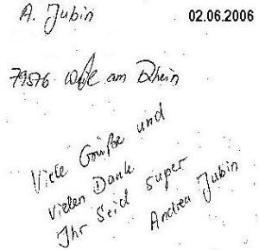 A. Jubin
02.06.2006
79576 Weil am Rhein
Viele Grüße und
vielen Dank
Ihr Seid super
Andrea Jubin